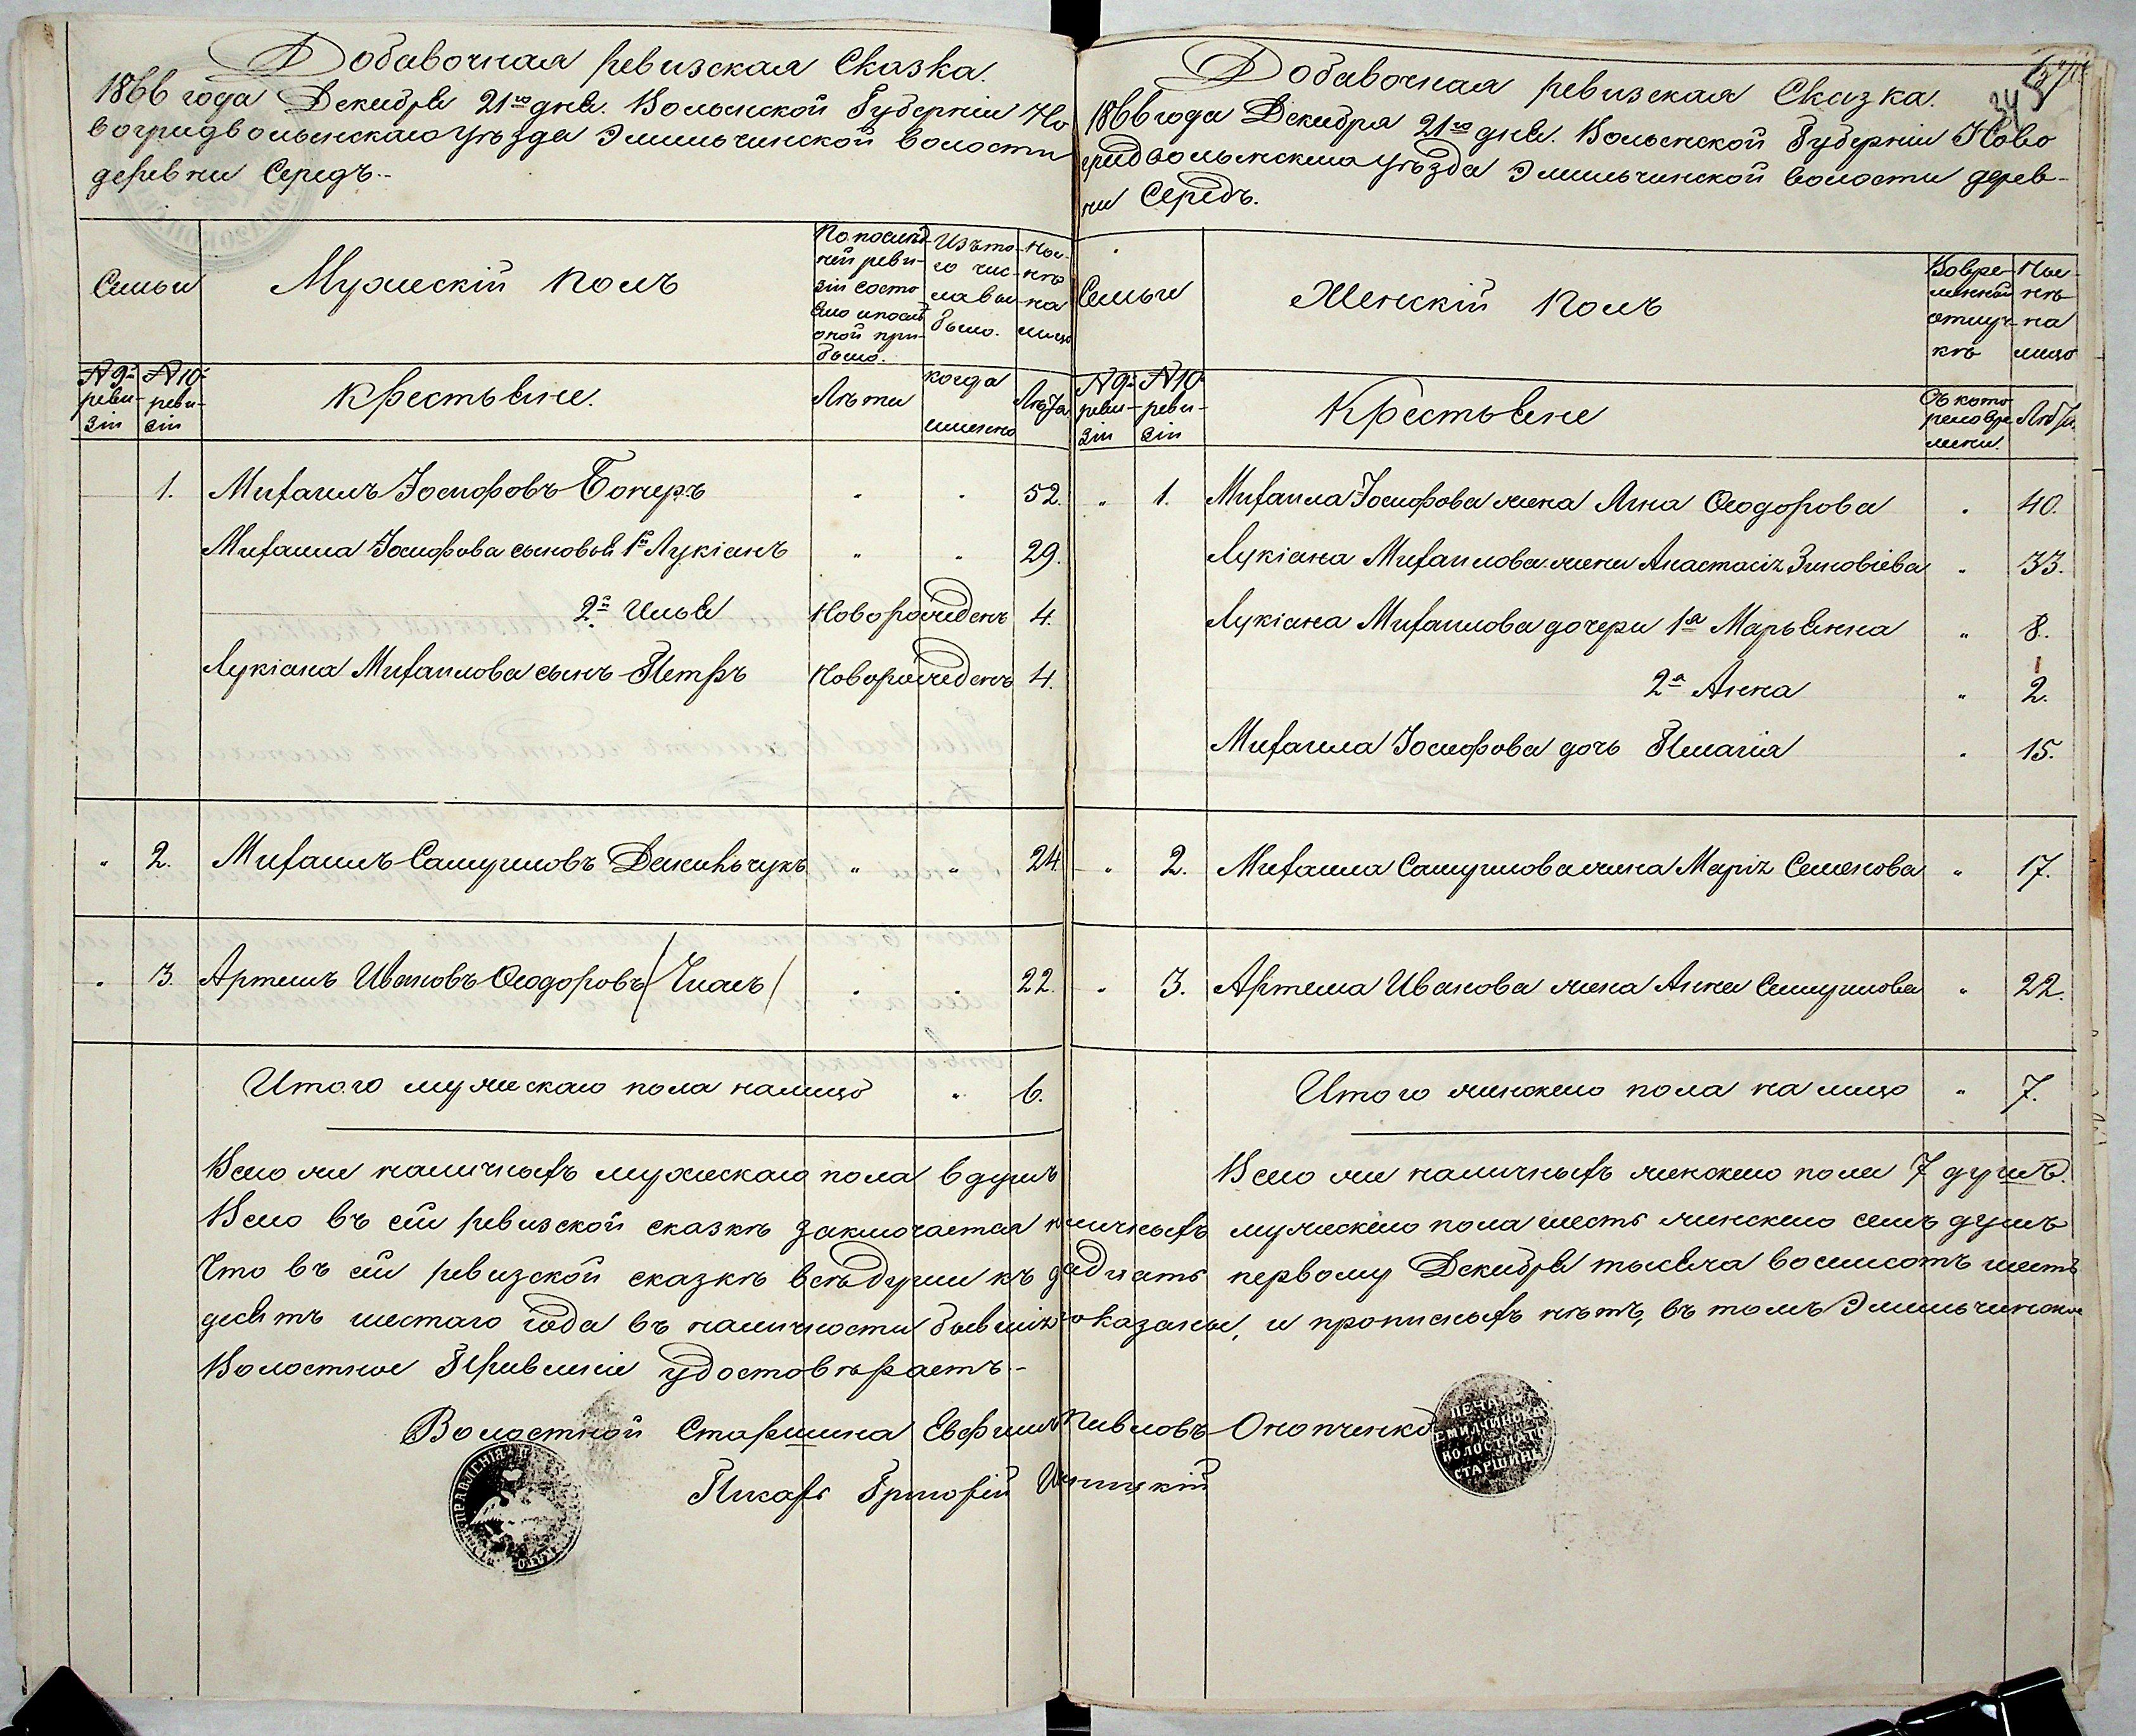 Добавочная ревизская Сказка.
1866 года Декабря 21го дня. Волынской Губерніи Но
воградволынскаго уѣзда Эмильчинской волости
деревни Середъ.
Семьи
Мужескій полъ
По послѣд
ней реви-
зіи состо
яло и послѣ
оной при-
было.
Изъ то-
го чис-
ла вы-
было.
Ны-
нѣ
на
лицо
№ 9й
реви-
зіи
№ 10й
реви-
зіи
Крестьяне.
Лѣта
когда
именно
Лѣта
1. Михаилъ Іосифовъ Бонеръ " " 52.
Михаила Іосифова сыновья 1й Лукіанъ " " 29.
2й Илья Новорожденъ 4.
Лукіана Михаилова сынъ Петръ Новорожденъ 4.
" 2. Михаилъ Самуиловъ Демьянчукъ " " 24.
" 3. Артемъ Ивановъ Ѳеодоровъ / / " " 22.
Итого мужескаго пола налицо " 6.
Всего же наличныхъ мужескаго пола 6 душъ
Добавочная ревизская Сказка.
1866 года Декабря 21го дня. Волынской Губерніи Ново
градволынскаго уѣзда Эмильчинской волости дерев-
ни Середъ.
Семьи
Женскій полъ
Во вре-
менной
отлуч-
кѣ
Ны-
нѣ
на
лицо
№ 9й
реви-
зіи
№ 10й
реви-
зіи
Крестьяне
Съ кото
раго вре
мени.
Лѣта
" 1. Михаила Іосифова жена Анна Ѳеодорова " 40.
Лукіана Михаилова жена Анастасія Зиновіева " 33.
Лукіана Михаилова дочери 1я Марьянна " 8.
2я Анна " 2.
Михаила Іосифова дочь Пелагія " 15.
" 2. Михаила Самуилова жена Марія Семенова " 17.
" 3. Артема Иванова жена Анна Самуилова " 22.
Итого женскаго пола на лицо " 7.
Всего же наличныхъ женскаго пола 7 душъ.
Всего въ сей ревизской сказкѣ заключается наличныхъ мужескаго пола шесть женскаго семь душъ
Что въ сей ревизской сказкѣ всѣ души къ двадцать первому Декабря тысяча восмисотъ шесть
десятъ шестаго года въ наличности бывшія показаны, и прописныхъ нѣтъ, въ томъ Эмильчинское
Волостное Правленіе удостовѣряетъ.
Волостной Старшина Евфимъ Павловъ Онопченко
Писарь Григорій
ПЕЧАТЬ
ЕМИЛЧИНСКА
ВОЛОСТНАГО
СТАРШИНЫ